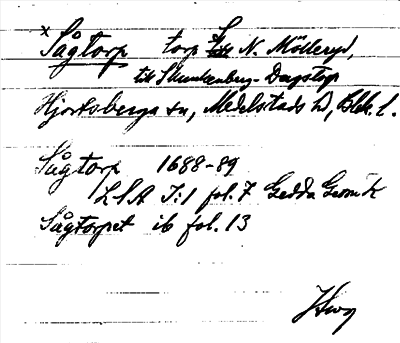 x Sågtorp torp t N. Mölleryd,
till Skunkenberg-Dagstorp
Hjortsberga sn, Medelstads hd, Blek. l.
Sågtorp 1688-89
LSA I:1 fol. 7 Gedda Geom K
Sågtorpet ib fol. 13